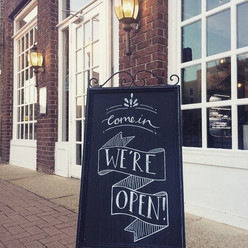 come in
WE'RE
OPEN!